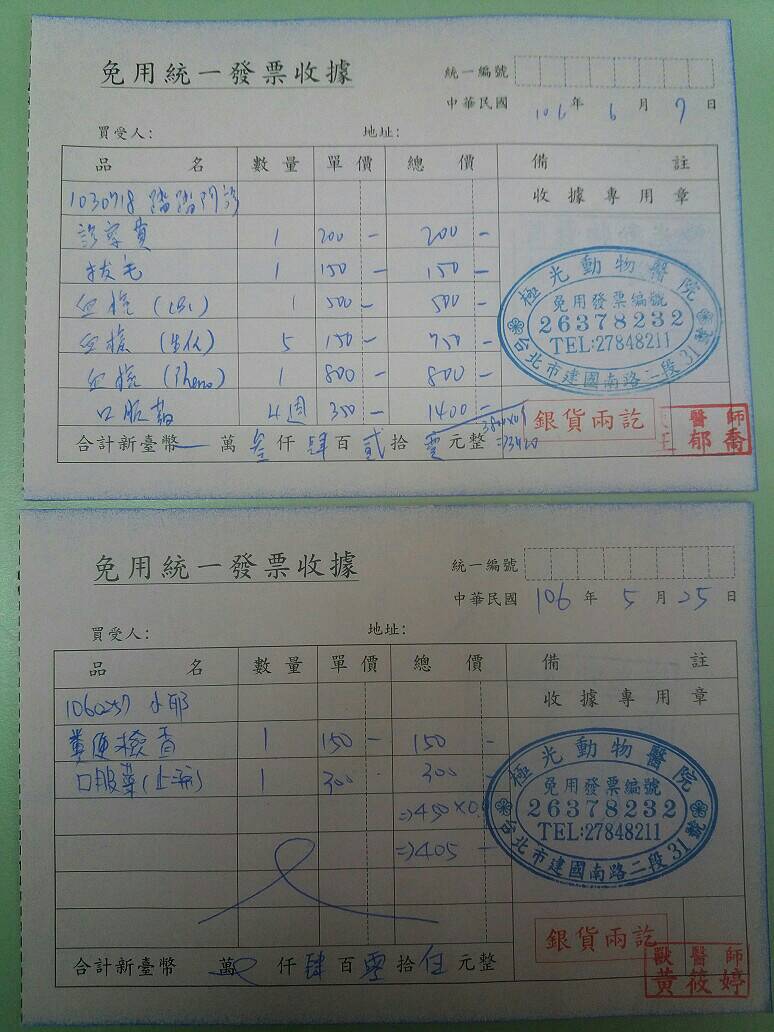 免用統一發票收據
統一編號
中華民國 106 年 6 月 7 日
買受人: 地址:
品名 數量 單價 總價 備註
1030718 踏踏門診 收據專用章
診察費 1 200 - 200 -
拔毛 1 150 - 150 -
血檢 (CBC) 1 500 - 500 -
血檢 (生化) 5 150 - 750 -
血檢 (Pheno) 1 800 - 800 -
口服藥 4週 350 - 1400 -
極光動物醫院
免用發票編號
26378232
TEL:27848211
台北市建國南路二段31號
3800×0.9
=3420
合計新臺幣 萬 叁 仟 肆 百 貳 拾 零 元整
銀貨兩訖
醫師
郁喬
免用統一發票收據
統一編號
中華民國 106 年 5 月 25 日
買受人: 地址:
品名 數量 單價 總價 備註
1060257 水耶 收據專用章
糞便檢查 1 150 - 150 -
口服藥(止瀉) 1 300 300 -
=>450×0.
=>405 -
極光動物醫院
免用發票編號
26378232
TEL:27848211
台北市建國南路二段31號
合計新臺幣 萬 仟 肆 百 零 拾 伍 元整
銀貨兩訖
獸醫師
黃筱婷